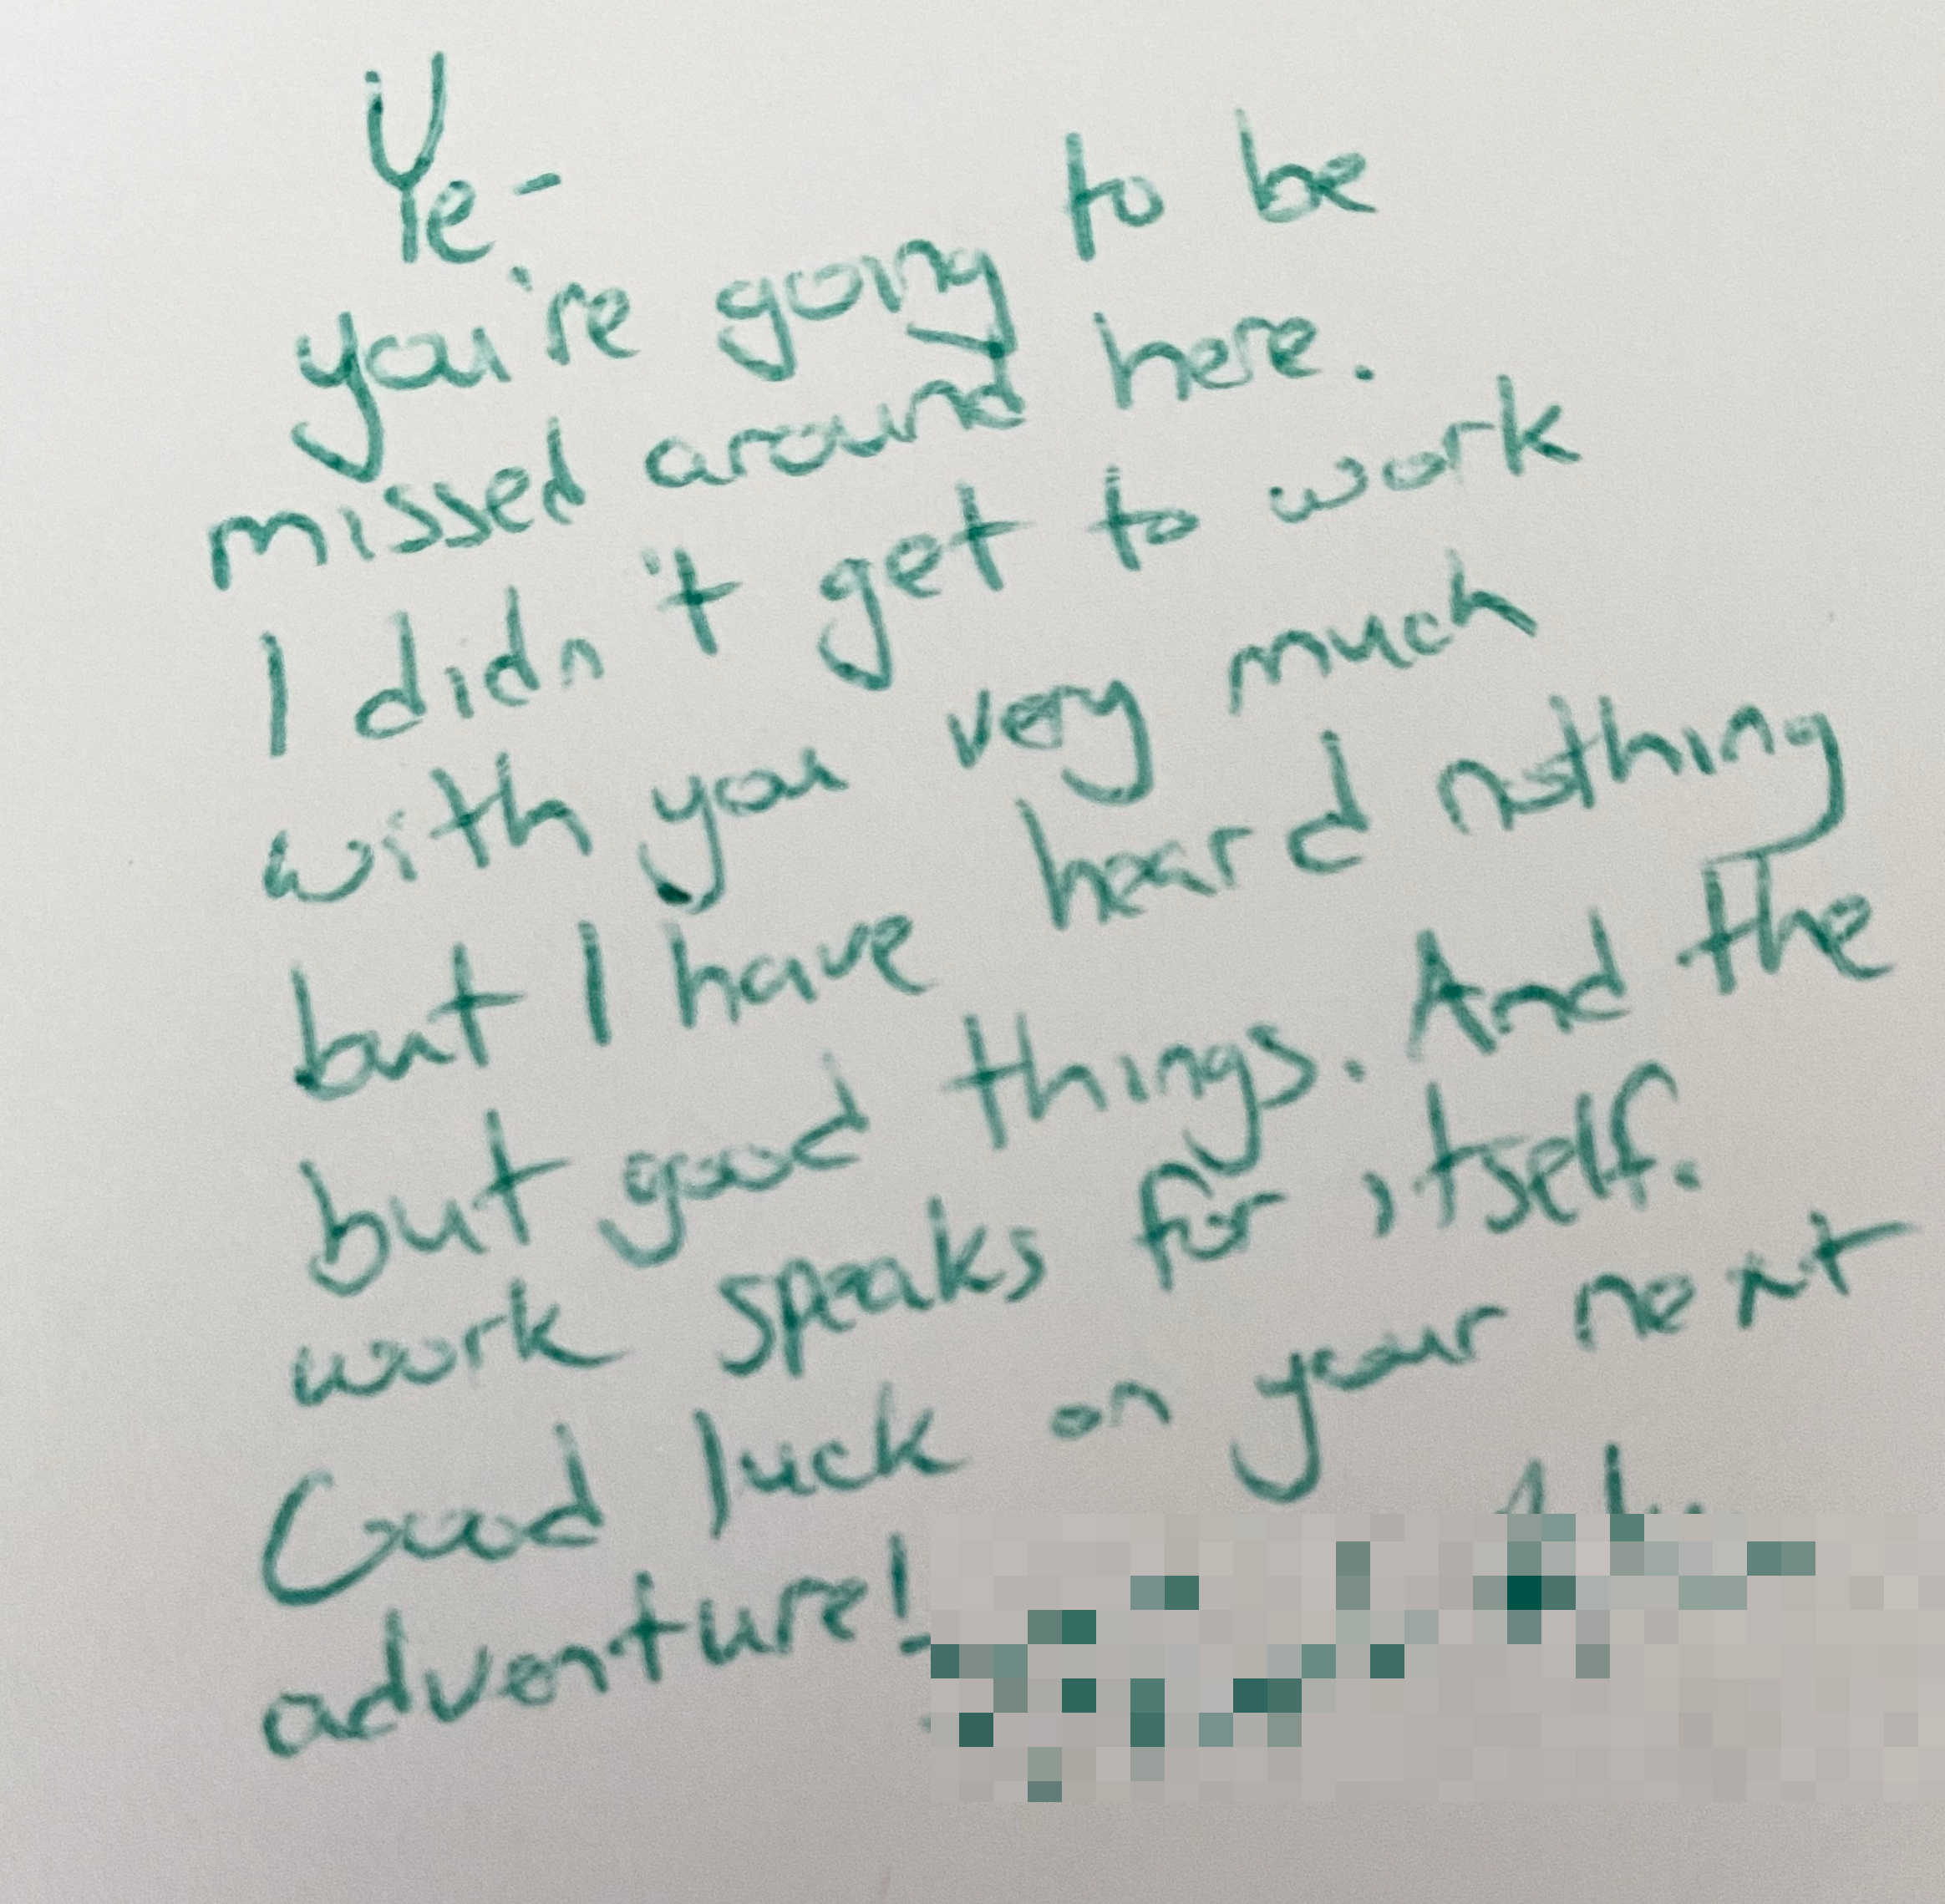 Ye-
you're going to be
missed around here.
I didn't get to work
with you very much
but I have heard nothing
but good things. And the
work speaks for itself.
Good luck on your next
adventure!